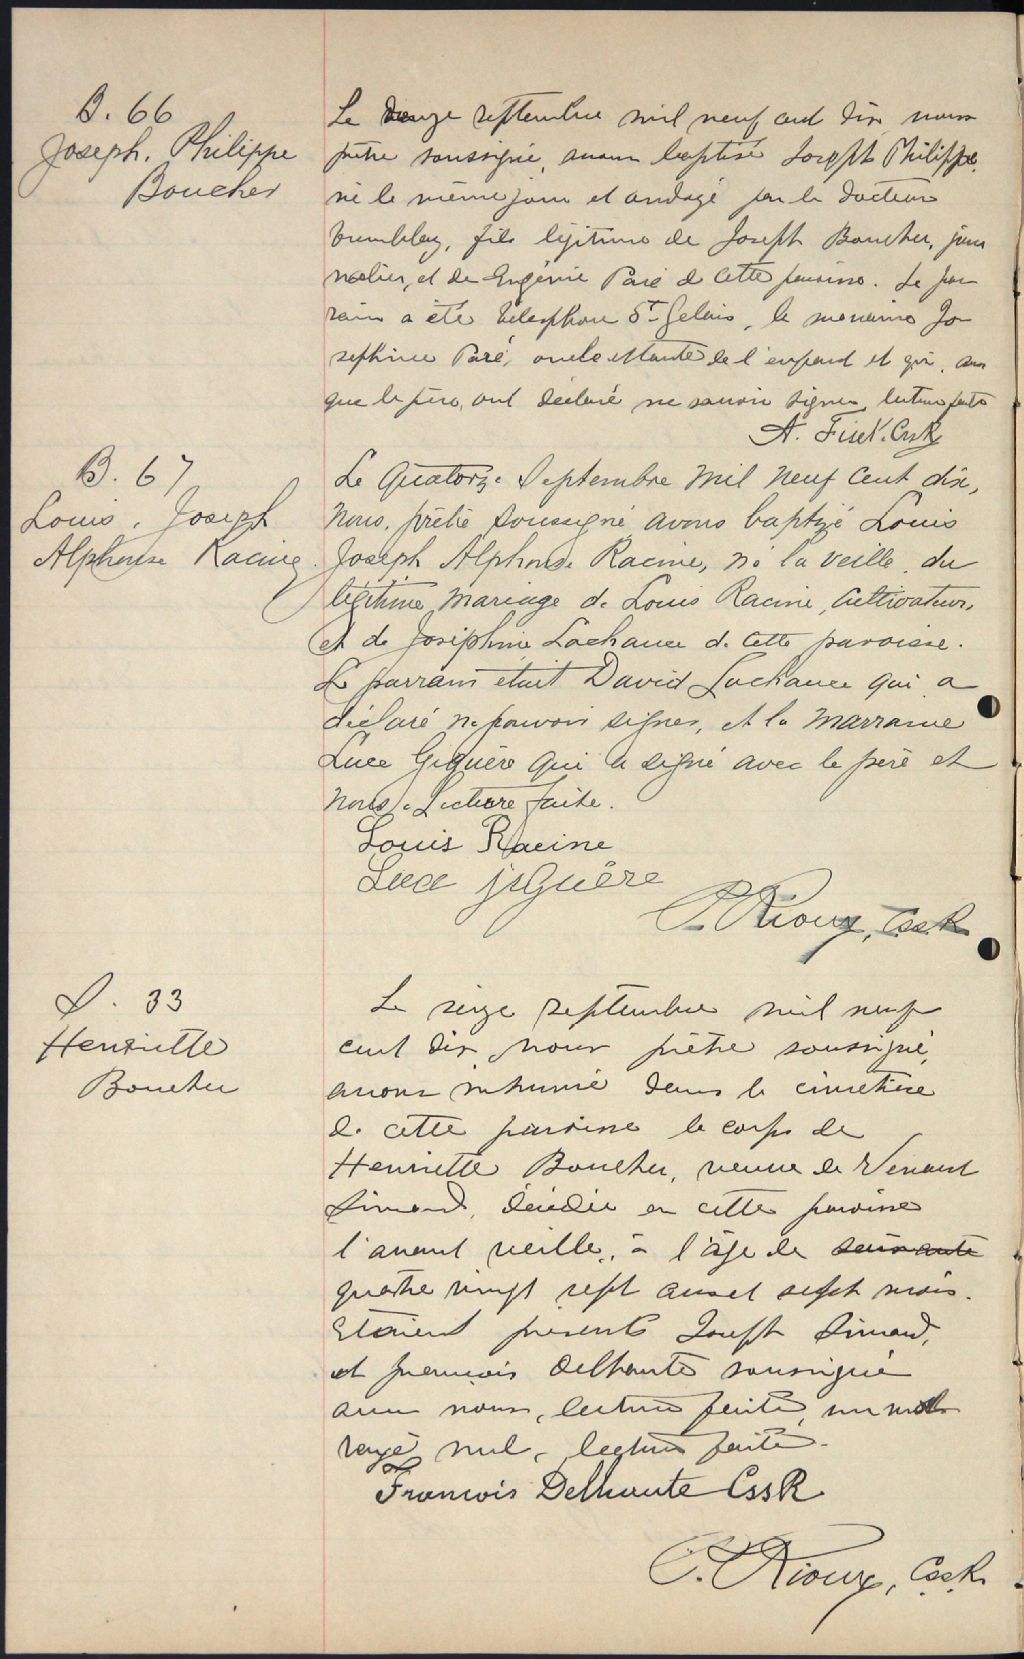 B. 66
Joseph. Philippe
Boucher
Le douze septembre mil neuf cent dix nous
prêtre soussigné, avons baptisé Joseph Philippe
né le même jour et ondoyé par le docteur
Tremblay, fils légitime de Joseph Boucher, jour
nalier, et de Eugénie Paré de cette paroisse. Le par
rain a été Télesphore St-Gelais, la marraine Jo
sephine Paré, oncle et tante de l'enfant et qui,
que le père, ont déclaré ne savoir signer, lecture faite
A. Fiset. CssR
B. 67
Louis. Joseph
Alphonse Racine.
Le Quatorze Septembre mil neuf cent dix,
nous, prêtre soussigné avons baptizé Louis
Joseph Alphonse Racine, né la veille, du
légitime mariage de Louis Racine, cultivateur,
et de Joséphine Lachance de cette paroisse.
Le parrain était David Lachance qui a
déclaré ne pouvoir signer, et la marraine
Luce Giguère qui a signé avec le père et
nous. Lecture faite.
Louis Racine
Luce jiguère
P. Rioux, CssR
S. 33
Henriette
Boucher
Le seize septembre mil neuf
cent dix nous prêtre soussigné,
avons inhumé dans le cimetière
de cette paroisse le corps de
Henriette Boucher, veuve de Venant
Simard, décédée en cette paroisse
l'avant veille, à l'âge de soixante
quatre vingt sept ans et sept mois.
Etaient présents Joseph Simard,
et François Delhaute soussigné
avec nous, lecture faite, un mot
rayé nul, lecture faite.
François Delhaute CssR
P. Rioux, CssR